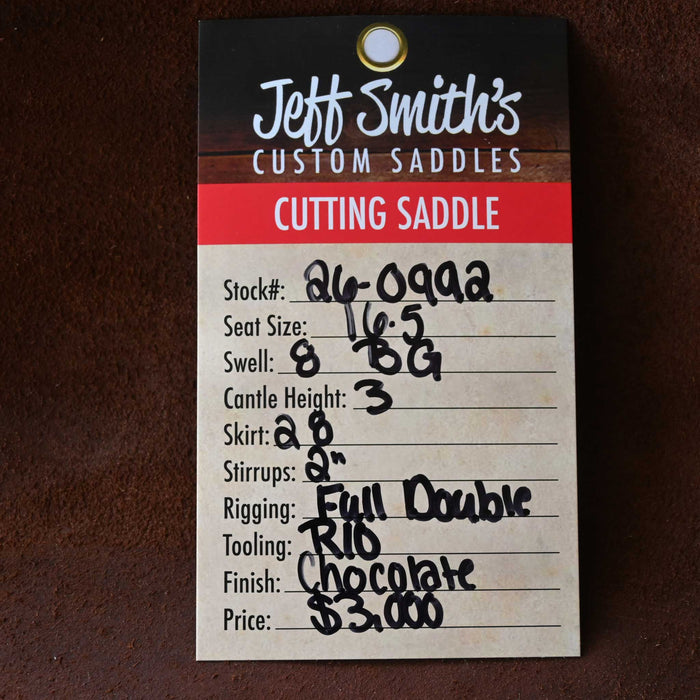 Jeff Smith's
CUSTOM SADDLES
CUTTING SADDLE
Stock#: 26-0992
Seat Size: 16.5
Swell: 8 BG
Cantle Height: 3
Skirt: 28
Stirrups: 2"
Rigging: Full Double
Tooling: R10
Finish: Chocolate
Price: $3,000